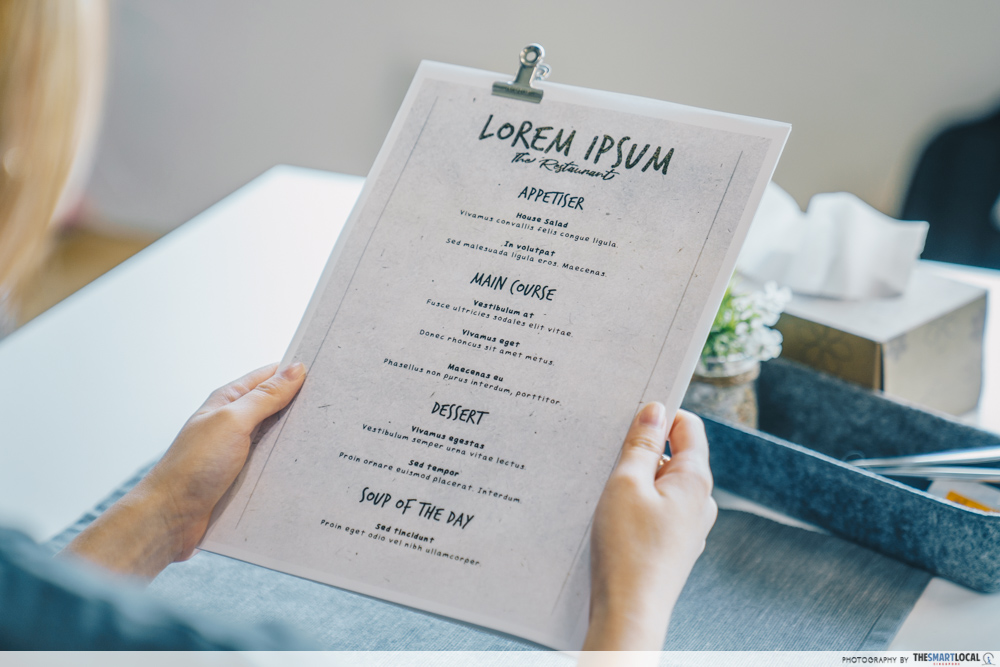 LOREM IPSUM
The Restaurant
APPETISER
House Salad
Vivamus convallis felis congue ligula.
In volutpat
Sed malesuada ligula eros. Maecenas.
MAIN COURSE
Vestibulum at
Fusce ultricies sodales elit vitae.
Vivamus eget
Donec rhoncus sit amet metus.
Maecenas eu
Phasellus non purus interdum, porttitor.
DESSERT
Vivamus egestas
Vestibulum semper urna vitae lectus.
Sed tempor
Proin ornare euismod placerat. Interdum.
SOUP OF THE DAY
Sed tincidunt
Proin eget odio vel nibh ullamcorper.
PHOTOGRAPHY BY THESMARTLOCAL
SINGAPORE